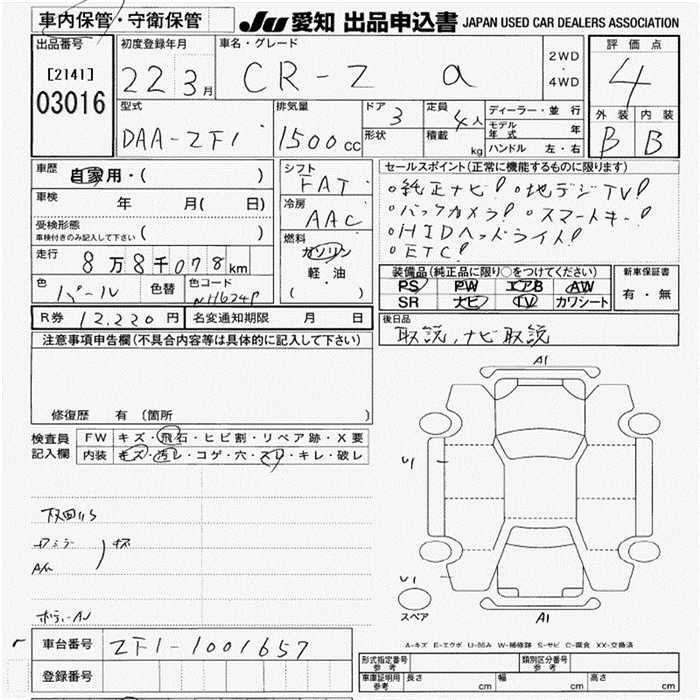 車内保管・守衛保管 JU 愛知 出品申込書 JAPAN USED CAR DEALERS ASSOCIATION
出品番号 初度登録年月 車名・グレード 評価点
[2141] 22 3月 CR-Z α 2WD・4WD 4
03016 型式 排気量 ドア 3 定員 4人 ディーラー・並行 外装 内装
DAA-ZF1 1500cc 形状 積載 kg モデル年式 年 B B
ハンドル 左・右
車歴 自家用・( ) シフト FAT セールスポイント(正常に機能するものに限り)
車検 年 月( 日) 冷房 AAC 。純正ナビ! 。地デジTV!
受検形態 。バックカメラ! 。スマートキー!
車検付きのみ記入して下さい ( ) 燃料 。HIDヘッドライト!
走行 8万8千078km ガソリン 。ETC!
色 パール 色替 色コード NH624P 軽・油 ( ) 装備品(純正品に限り○をつけてください) 新車保証書
PS PW エアB AW 有・無
SR ナビ TV カワシート
R券 12,220円 名変通知期限 月 日 後日品
注意事項申告欄(不具合内容等は具体的に記入して下さい) 取説,ナビ取説
修復歴 有 (箇所 )
検査員 FW キズ・飛石・ヒビ割・リペア跡・X要
記入欄 内装 キズ・汚レ・コゲ・穴・スレ・キレ・破レ
A1
U1
U1
スペア
A1
A-キズ E-エクボ U-凹み W-補修跡 S-サビ C-腐食 XX-交換済
車台番号 ZF1-1001657
登録番号
形式指定番号 参考 類別区分番号 参考
車庫証明用 参考 長さ cm 幅 cm 高さ cm